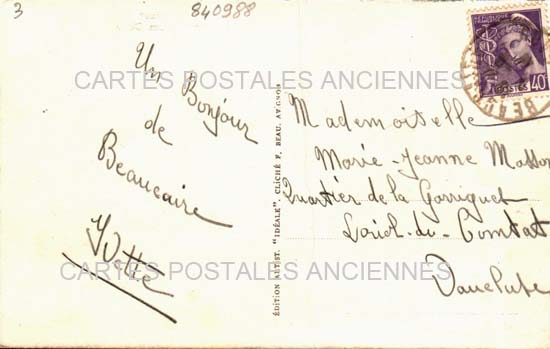 3
840988
CARTES POSTALES ANCIENNES
Un Bonjour
de
Beaucaire
Yvette
ÉDITION ARTIST. "IDÉALE", CLICHÉ F. BEAU, AVIGNON
POSTES
40
BEAU
Mademoiselle
Marie-Jeanne Masson
Quartier de la Garriguet
Loriol-du-Comtat
Vaucluse
CARTES POSTALES ANCIENNES